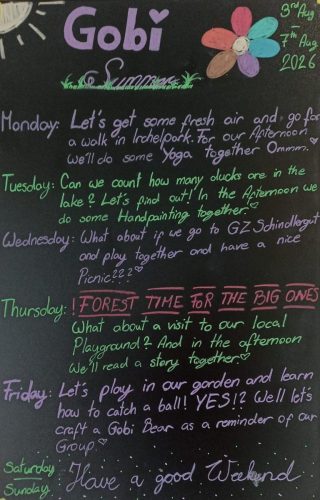 Gobi
Summer
3rd Aug
-
7th Aug
2026
Monday: Let's get some fresh air and go for
a walk in Irchelpark. For our Afternoon
we'll do some Yoga together Ommm.
Tuesday: Can we count how many ducks are in the
lake? Let's find out! In the Afternoon we
do some Handpainting together.
Wednesday: What about if we go to GZ Schindlergut
and play together and have a nice
Picnic???
Thursday: ! FOREST TIME FOR THE BIG ONES
What about a visit to our local
Playground? And in the afternoon
We'll read a story together
Friday: Let's play in our garden and learn
how to catch a ball! YES!? We'll let's
craft a Gobi Bear as a reminder of our
Group.
Saturday
Sunday Have a good Weekend